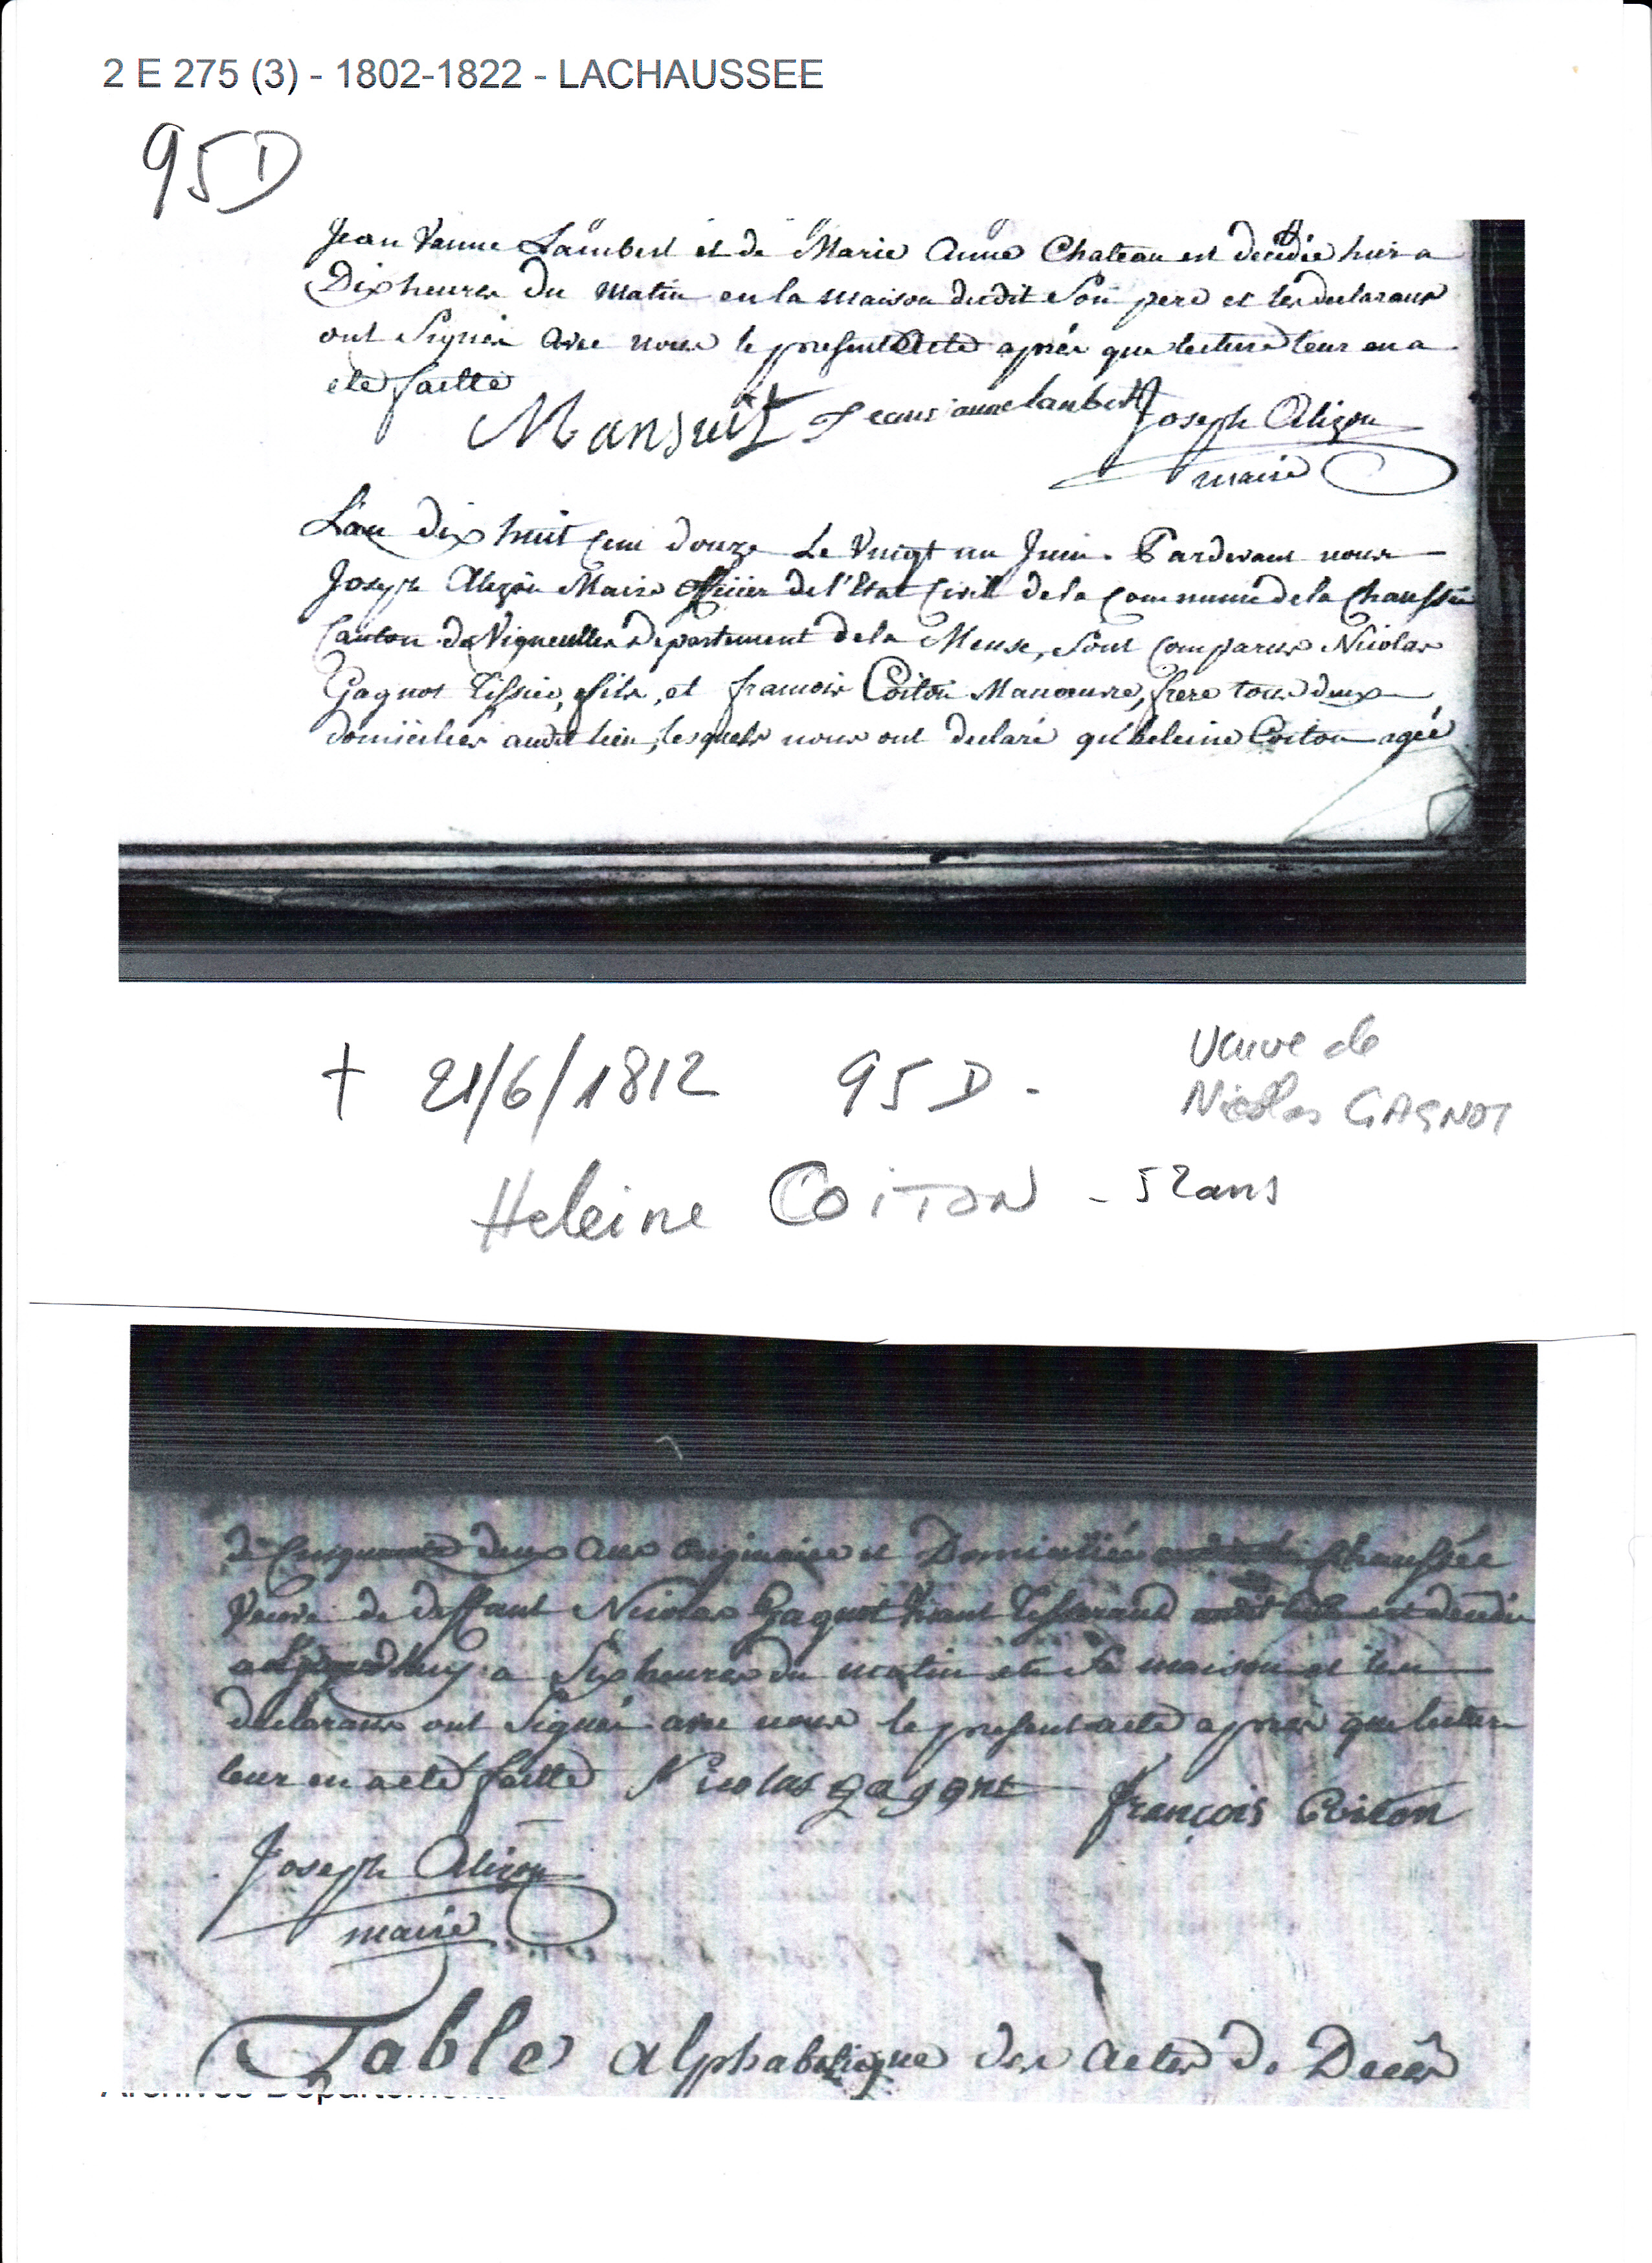 2 E 275 (3) - 1802-1822 - LACHAUSSEE
95D
Jean Vanne Lambert et de Marie Anne Chateau est decédée hier a
Dix heures du matin en la maison dudit Son pere et les declarans
ont Signés avec nous le present Acte aprés que lecture leur en a
eté faitte
Mansuit Jean vanne lambert Joseph Alizon
maire
L'an dix huit Cent douze Le Vingt un Juin. Pardevant nous
Joseph Alizon Maire Officier de l'Etat Civil de la Commune de la Chaussée
Canton de Vigneulles Departement de la Meuse, Sont Comparus Nicolas
Gagnot Tissier, fils, et francois Coiton Manoeuvre, frere tous deux
domiciliés audit lieu, lesquels nous ont declaré qu'heleine Coiton agée
† 21/6/1812 95 D - Veuve de
Nicolas GAGNOT
Heleine COITON - 52 ans
de Cinquante deux ans originaire et Domiciliée chaussée
Veuve de deffunt Nicolas Gagnot Vivant Tisserand est decedée
a Six heures du matin en Sa maison et les
declarans ont Signés avec nous le present acte aprés que lecture
leur en a eté faitte Nicolas gagont françois Coiton
Joseph Alizon
maire
Table alphabetique des actes de Decés
Archives Departement